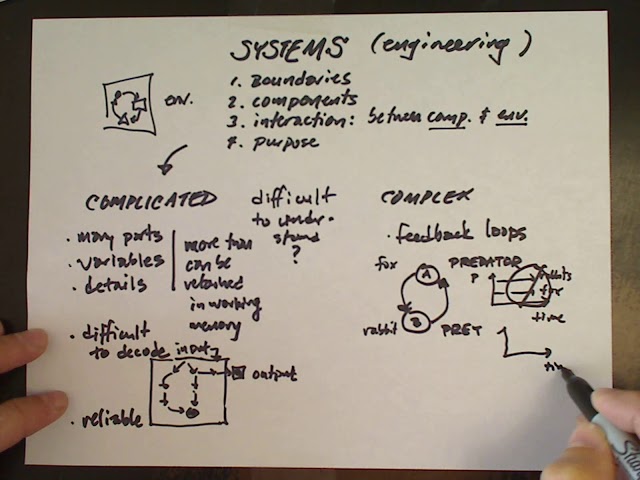 SYSTEMS (engineering)
1. Boundaries
2. components
3. interaction: between comp. & env.
4. purpose
env.
COMPLICATED
• many parts
• variables
• details
more than
can be
retained
in working
memory
• difficult
to decode inputs
output
• reliable
difficult
to under-
stand
?
COMPLEX
• feedback loops
fox
A
PREDATOR
B
rabbit
PREY
P
rabbits
fox
time